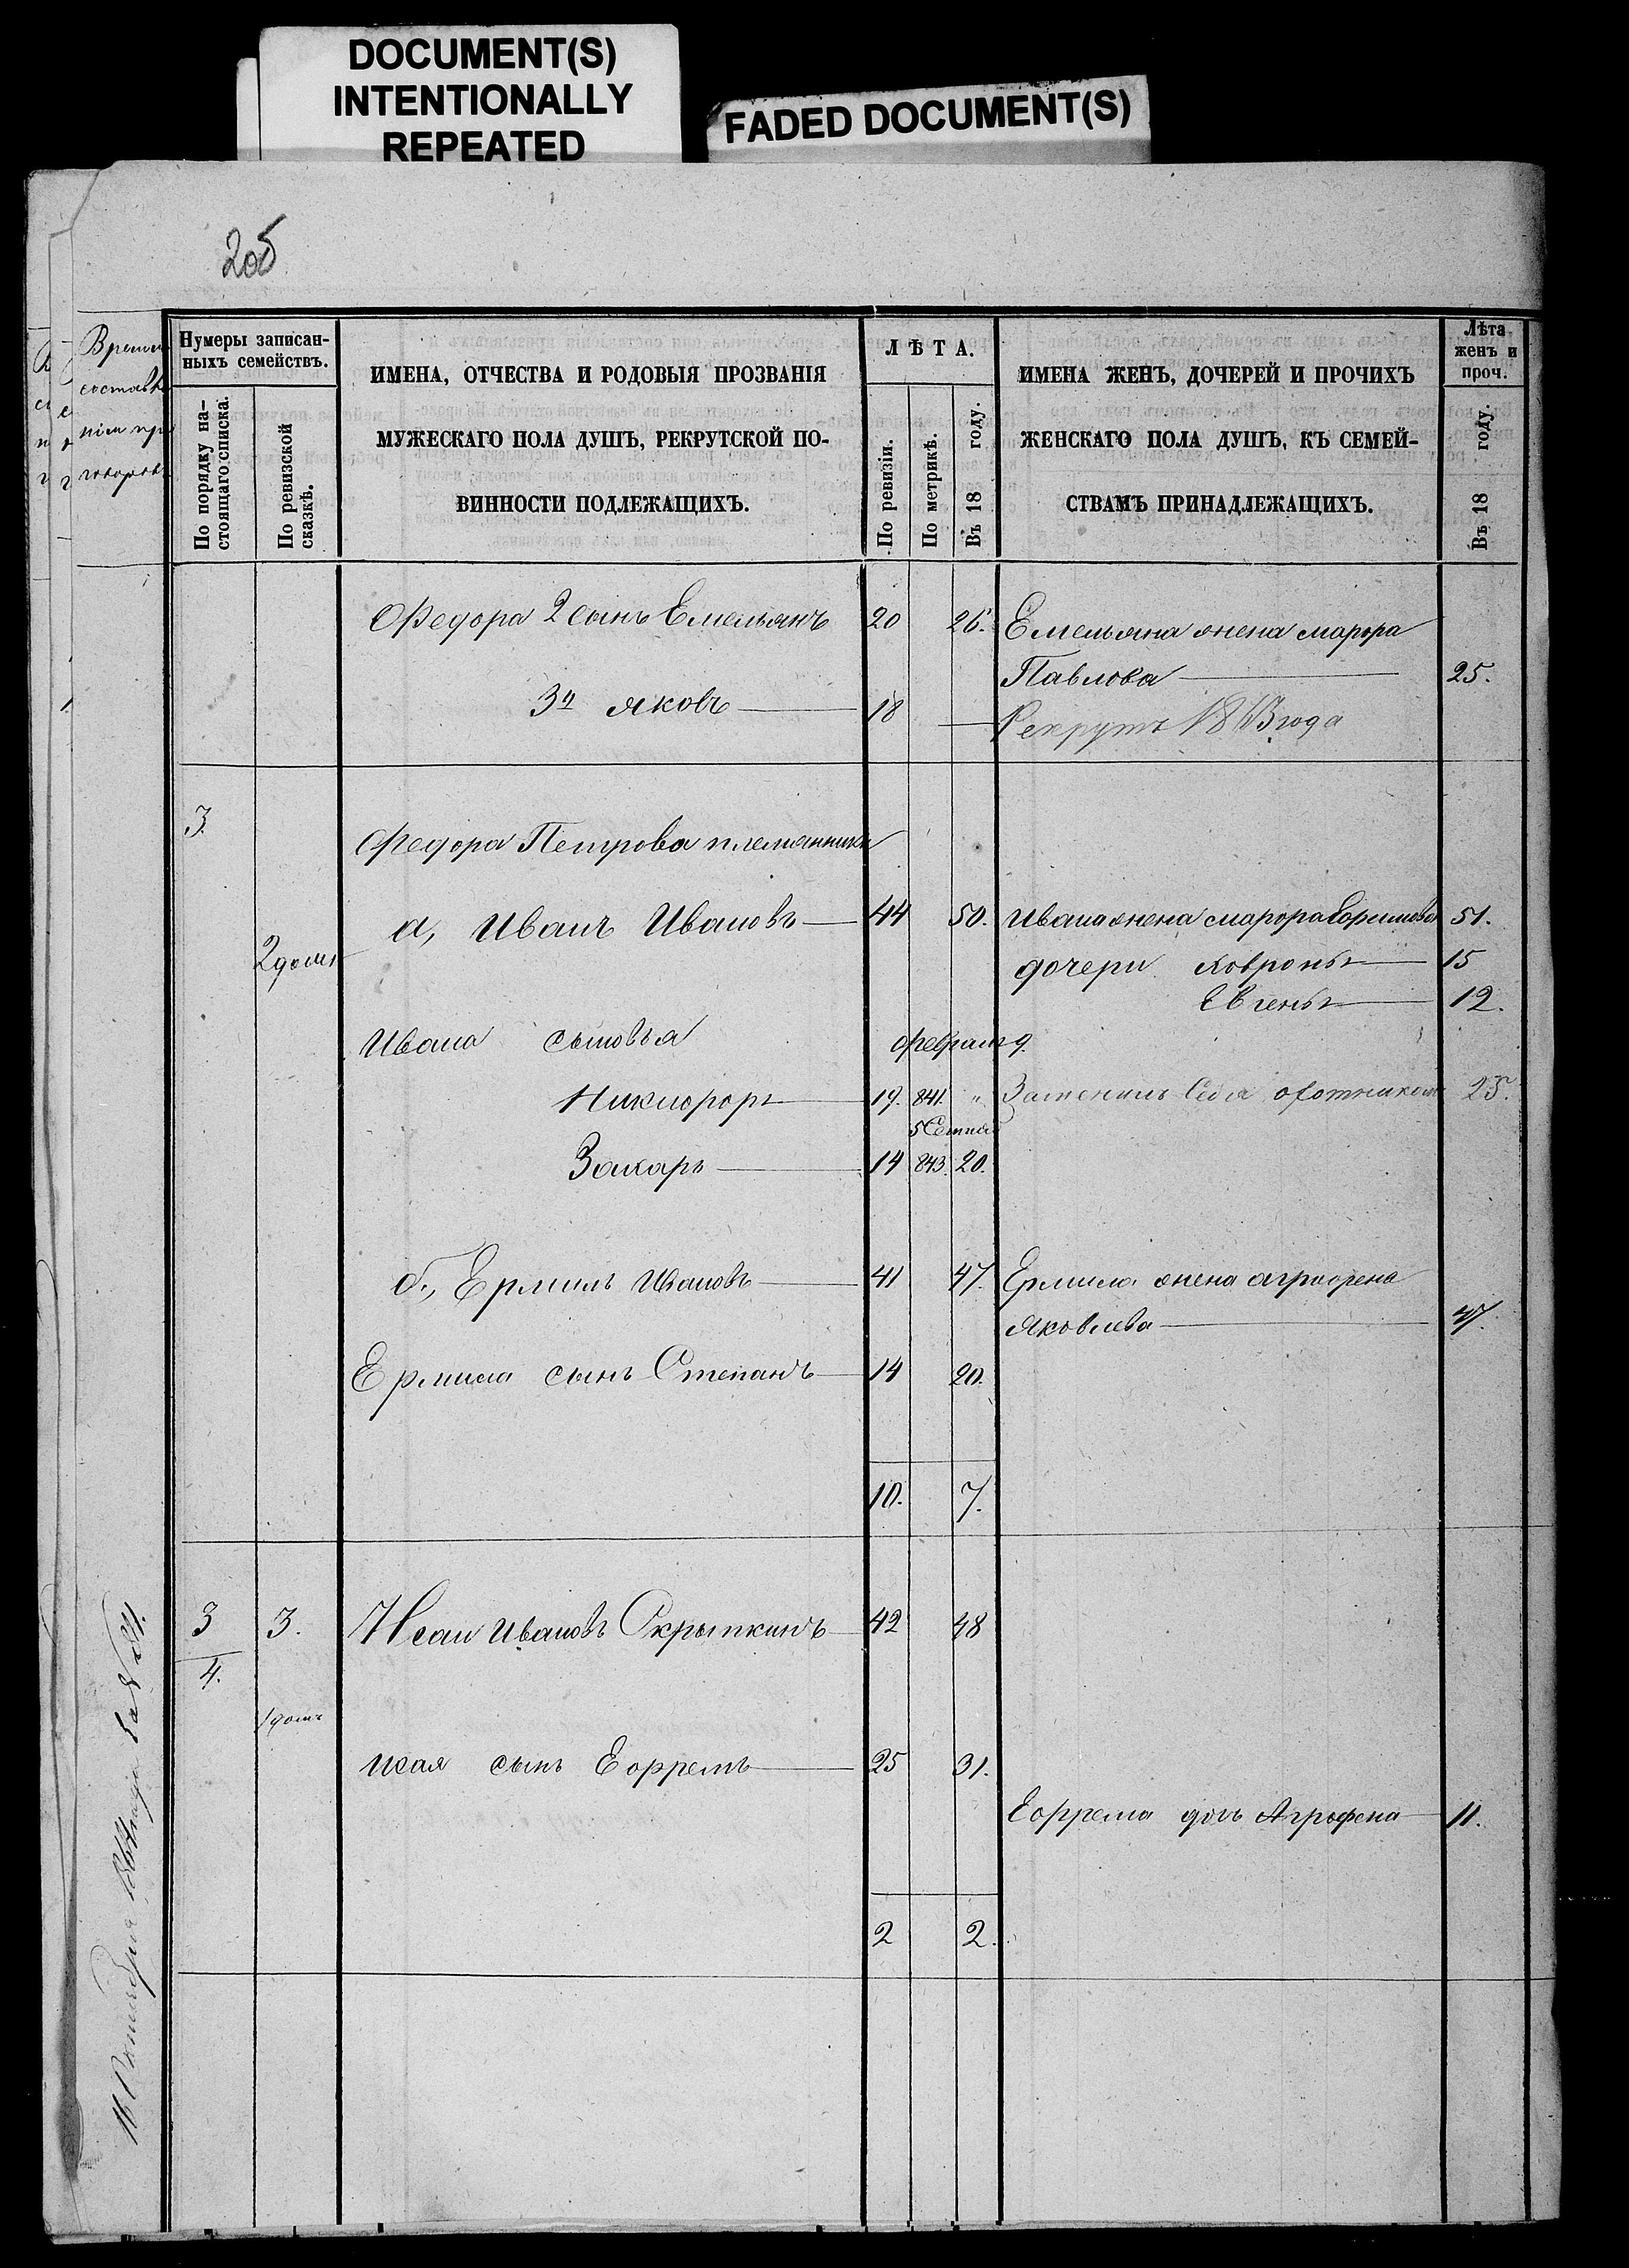 DOCUMENT(S)
INTENTIONALLY
REPEATED
FADED DOCUMENT(S)
205
Нумеры записан-
ныхъ семействъ.
По порядку на-
стоящаго списка.
По ревизской
сказкѣ.
ИМЕНА, ОТЧЕСТВА И РОДОВЫЯ ПРОЗВАНІЯ
МУЖЕСКАГО ПОЛА ДУШЪ, РЕКРУТСКОЙ ПО-
ВИННОСТИ ПОДЛЕЖАЩИХЪ.
ЛѢТА.
По ревизіи.
По метрикѣ.
Въ 18 году.
ИМЕНА ЖЕНЪ, ДОЧЕРЕЙ И ПРОЧИХЪ
ЖЕНСКАГО ПОЛА ДУШЪ, КЪ СЕМЕЙ-
СТВАМЪ ПРИНАДЛЕЖАЩИХЪ.
Лѣта
женъ и
проч.
Въ 18 году.
Федора 2 сынъ Емельянъ 20 26. Емельяна жена Марфа
Павлова 25.
3й Яковъ 18 Рекрутъ
3.
Федора Петрова племянники
а, Иванъ Ивановъ 44 50. Ивана жена Марфа 51.
2 дом
дочери 15
Евгенья 12.
Ивана сыновья Феврал 9.
Никифоръ 19. 841. " Заменилъ себя охотникомъ 25.
5
Захаръ 14 843. 20.
б, Ермилъ Ивановъ 41 47. Ермила жена Агрофена
Яковлева 47.
Ермила сынъ Степанъ 14 20.
10. 7.
3 3. Исаи Ивановъ Скрыпкинъ 42 48
4.
1 дом
Исая сынъ Ефремъ 25 31.
Ефрема дочь Агрофена 11.
2 2.